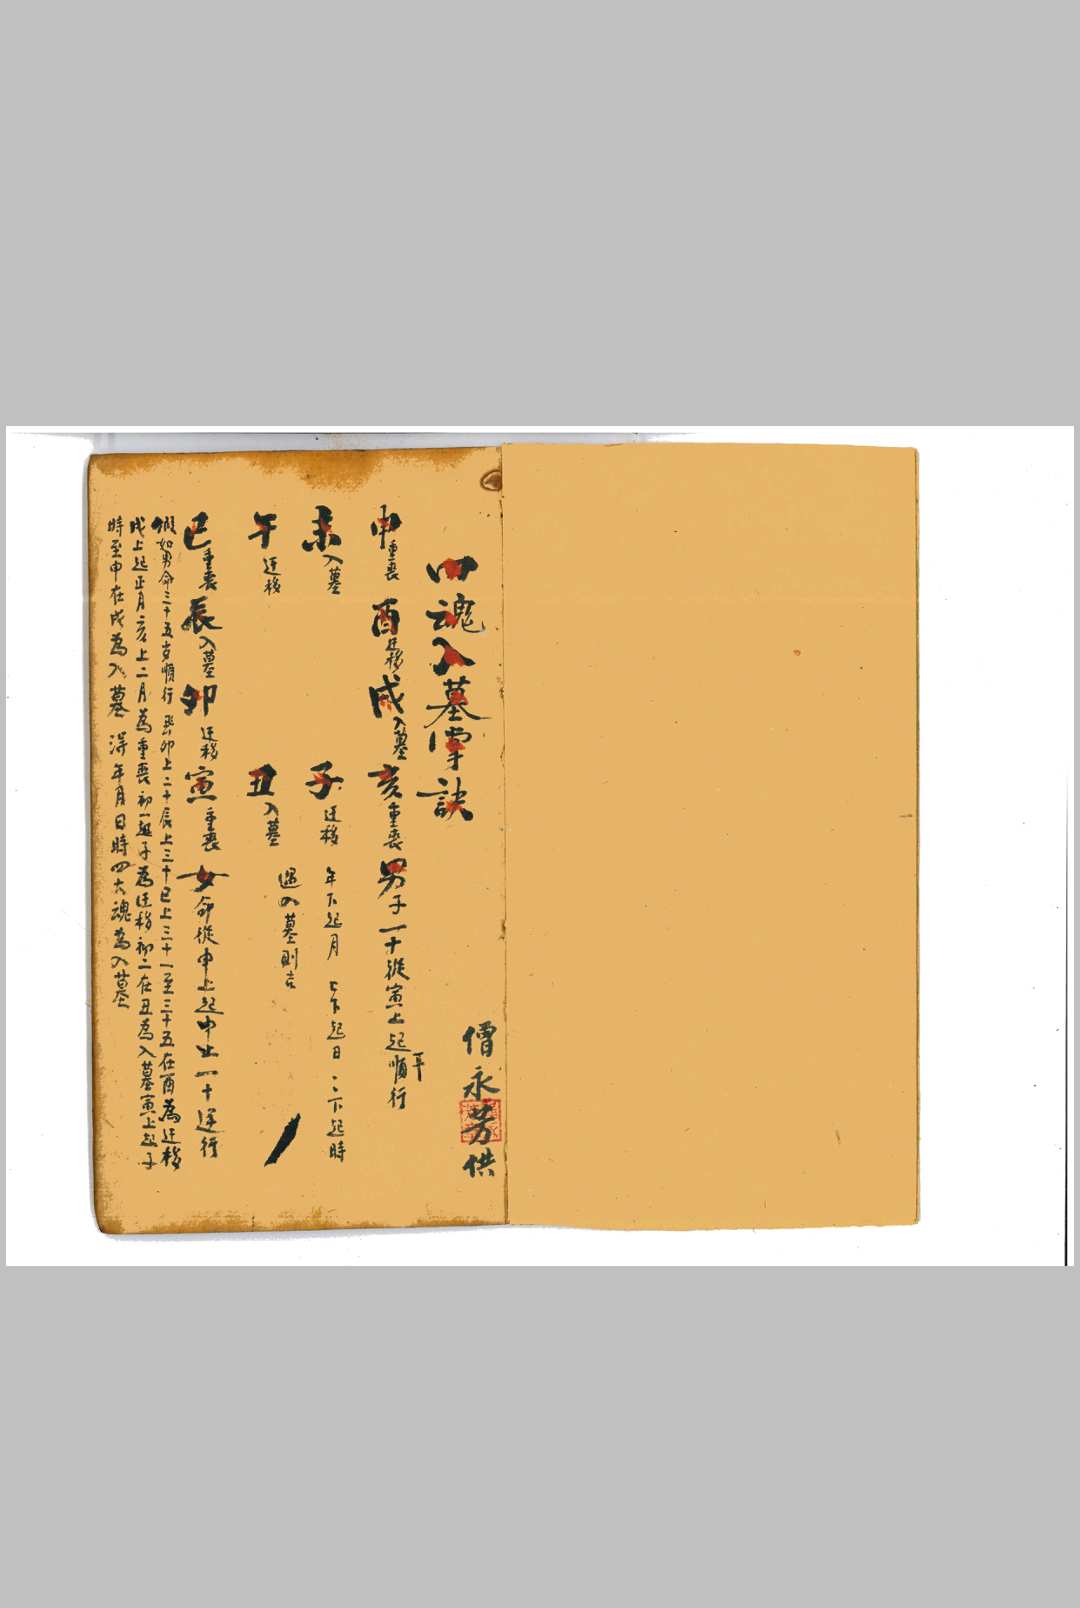 僧永芳供
四魂入墓掌訣
申重喪 酉迁移 戌入墓 亥重喪 男子一十從寅上起順行
未入墓 子迁移 年下起月 月下起日 日下起時
午迁移 丑入墓 遇入墓則吉
巳重喪 辰入墓 卯迁移 寅重喪 女命從申上起申上一十逆行
假如男命三十五歲順行 卯上二十辰上三十巳上三十一至三十五在酉為迁移
戌上起正月亥上二月為重喪初一起子為迁移初二在丑為入墓寅上起子
時至申在戌為入墓 得年月日時四大魂為入墓